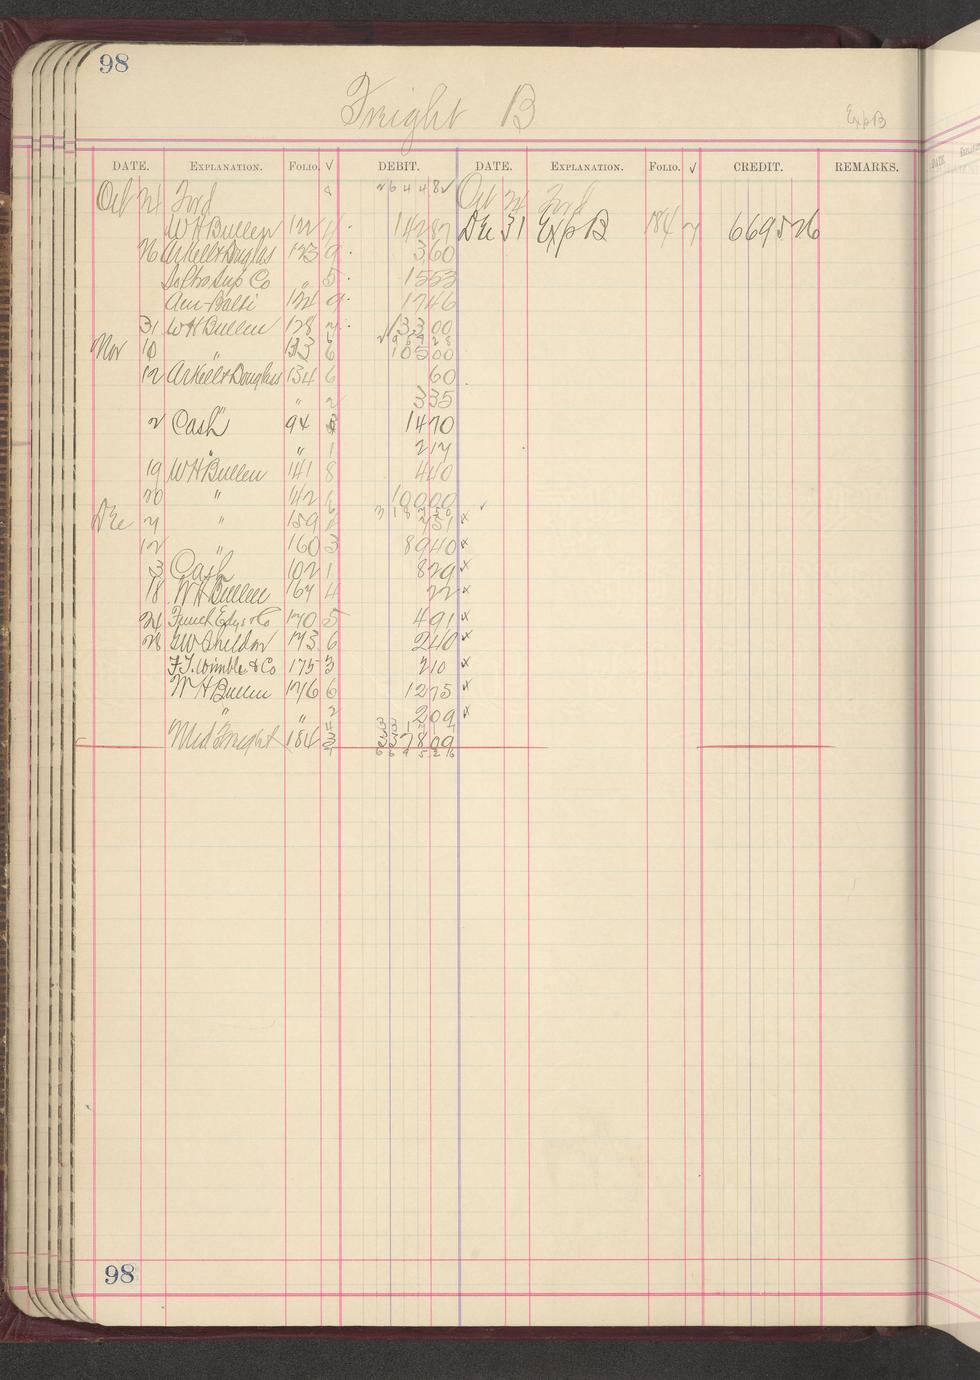 98
Freight B
Exp B
DATE. EXPLANATION. FOLIO. √ DEBIT. DATE. EXPLANATION. FOLIO. √ CREDIT. REMARKS.
Oct 24 Ford 264482 Oct 24 Ford
W H Bullen 122 14287 Dec 31 Exp B 184 7 669526
26 Arkell & Douglas 123 9 360
Sup Co " 5 1553
Am-Balti 124 9 1746
31 W H Bullen 128 2 13300
296728
Nov 10 " 133 6 10500
12 Arkell & Douglass 134 6 60
" 2 335
2 Cash 94 1470
" " 1 217
19 W H Bullen 141 8 440
20 " 142 6 10000
318750
Dec 7 " 159 751 x
12 " 160 3 8940 x
3 Cash 102 1 829 x
18 W H Bullen 167 4 22 x
24 Funch Edye & Co 170 5 491 x
28 G W Sheldon 173 6 240 x
F. T. Wimble & Co 175 3 210 x
W H Bullen 176 6 1275 x
" " 2 209 x
Mid Freight 184 3 237809
669526
98